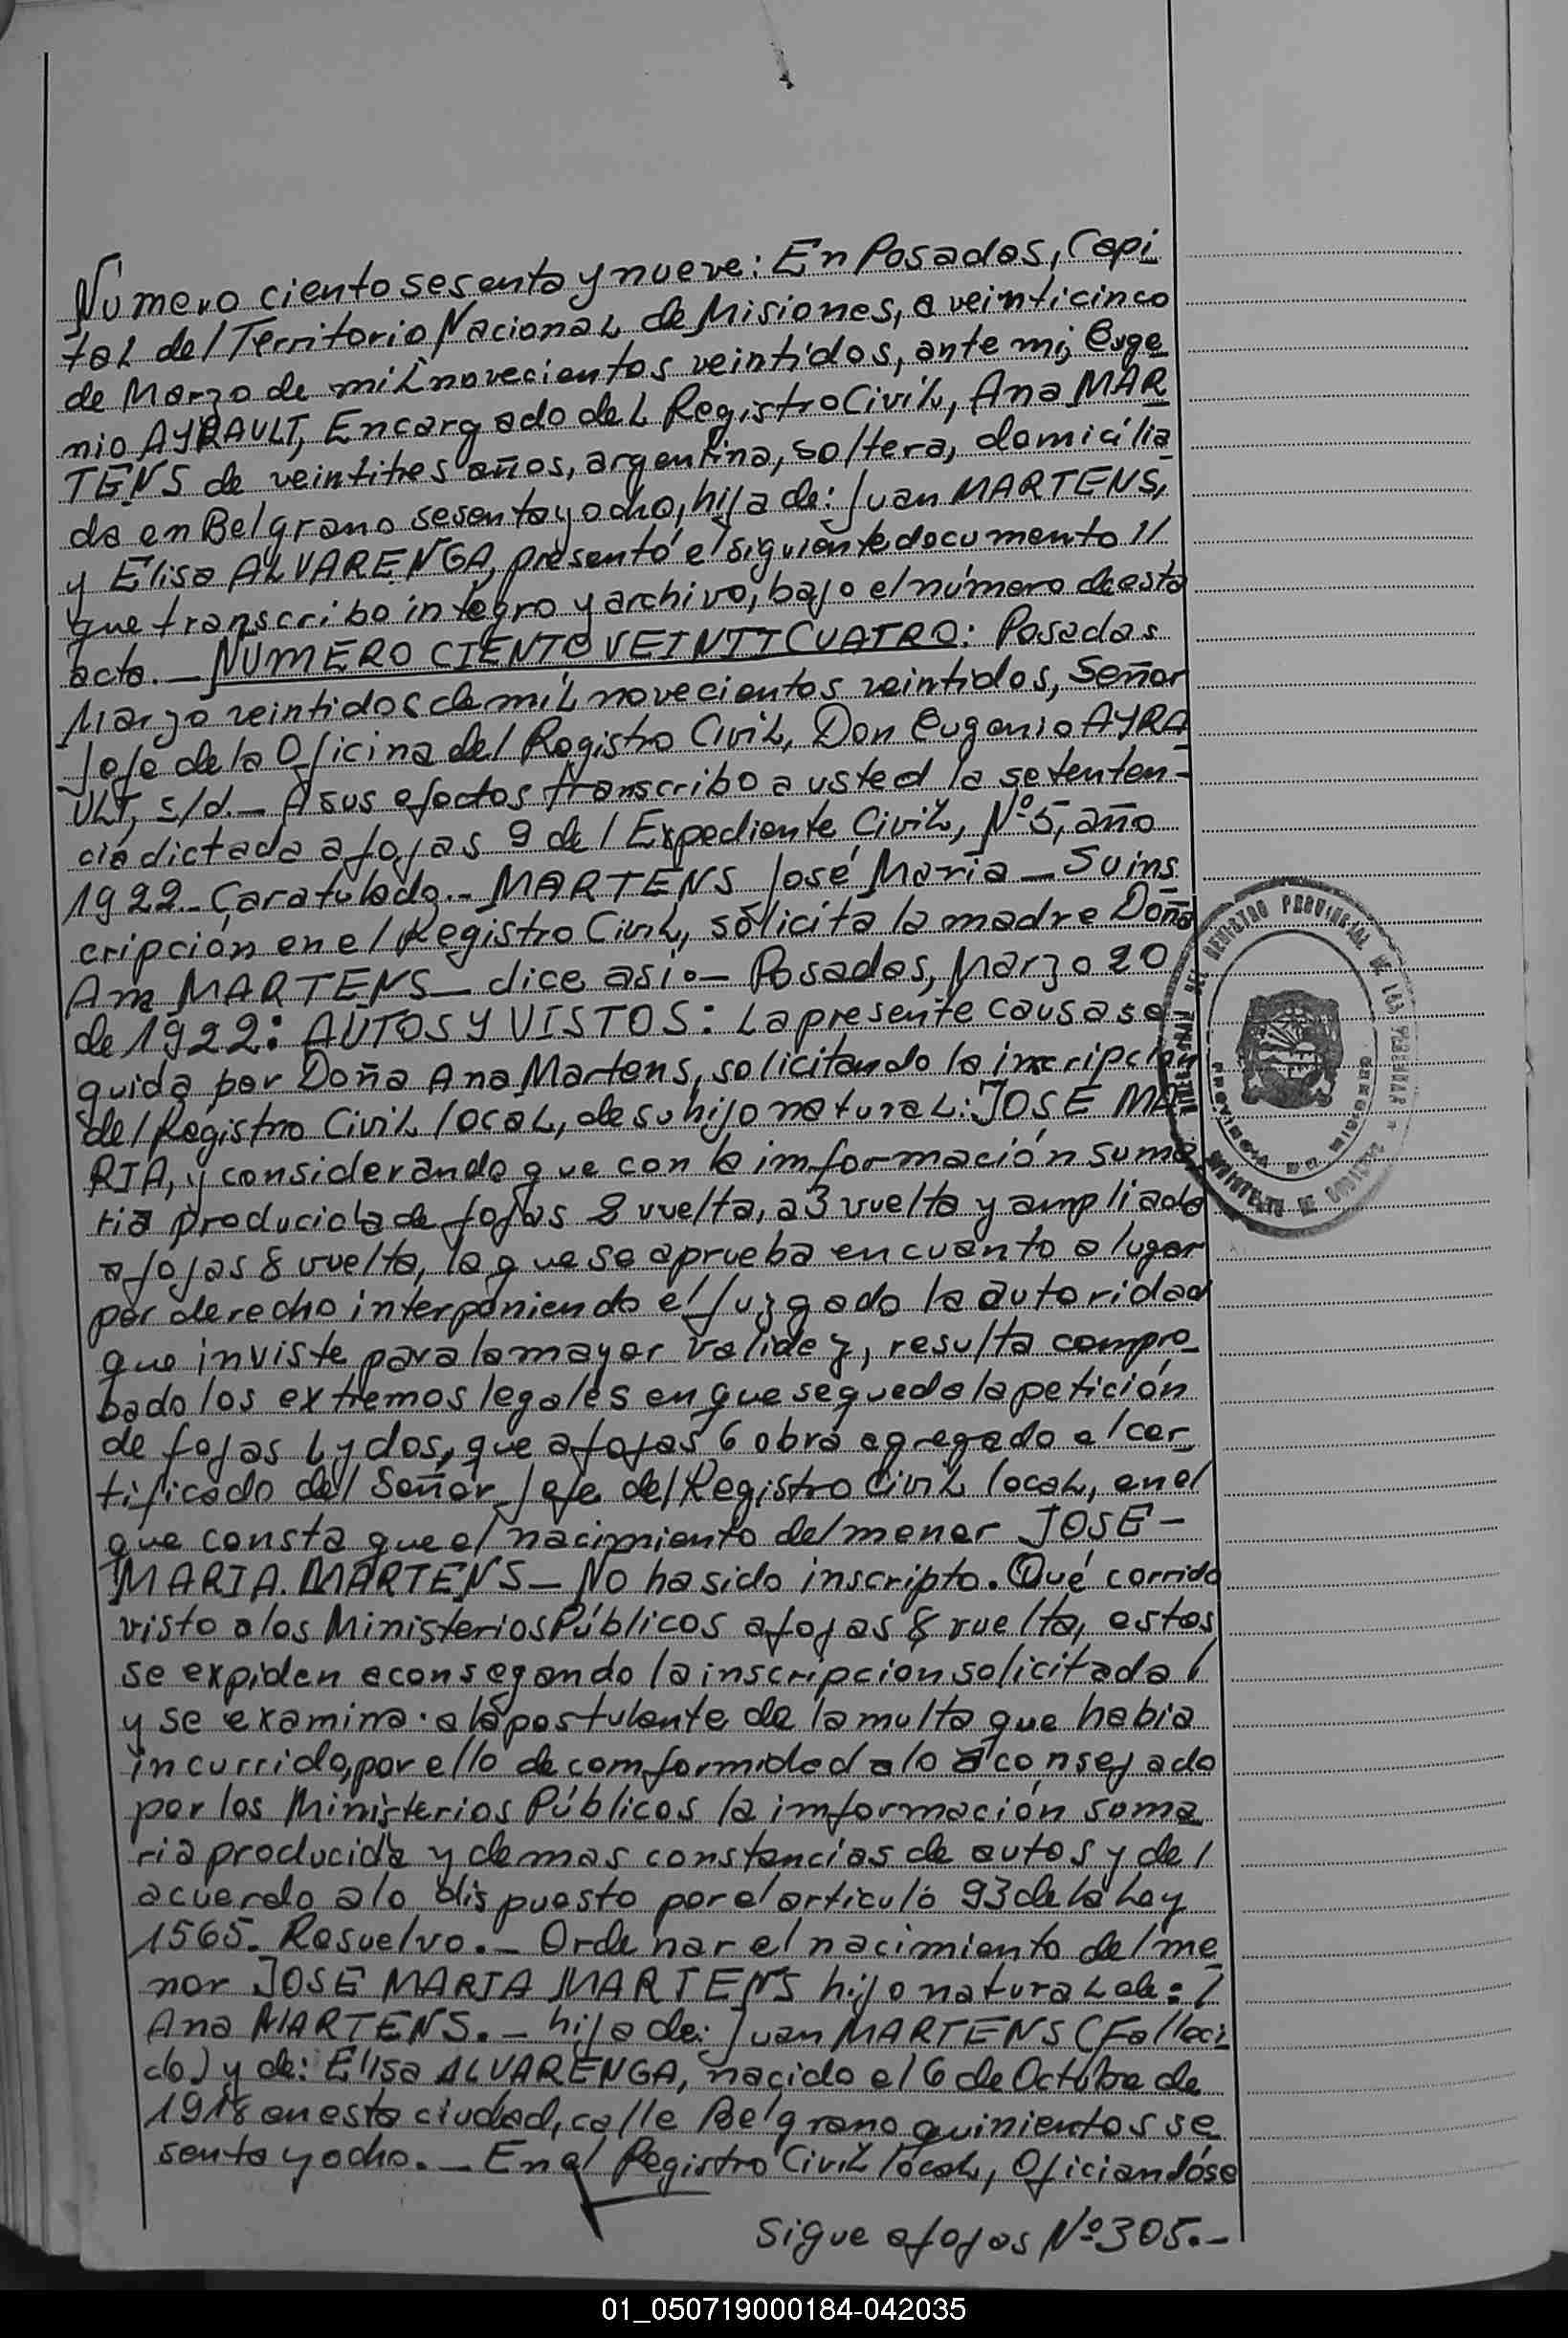 Número ciento sesenta y nueve: En Posadas, Capi
tal del Territorio Nacional de Misiones, a veinticinco
de Marzo de mil novecientos veintidos, ante mi, Euge
nio AYRAULT, Encargado del Registro Civil, Ana MAR
TENS de veintitres años, argentina, soltera, domicilia
da en Belgrano sesenta y ocho, hija de: Juan MARTENS,
y Elisa ALVARENGA, presentó el siguiente documento //
que transcribo integro y archivo, bajo el número de esta
acta.— NÚMERO CIENTO VEINTICUATRO: Posadas
Marzo veintidos de mil novecientos veintidos, Señor
Jefe de la Oficina del Registro Civil, Don Eugenio AYRA
ULT, s/d.— A sus efectos transcribo a usted la setenten-
cia dictada a fojas 9 del Expediente Civil, Nº 5, año
1922.- Caratulado.- MARTENS José María — Su ins
cripción en el Registro Civil, sólicita la madre Doña
Ana MARTENS — dice así:— Posadas, Marzo 20
de 1922: AUTOS Y VISTOS: La presente causa se
guida por Doña Ana Martens, solicitando la inscripción
del Registro Civil local, de su hijo natural: JOSE MA
RIA, y considerando que con la imformación suma
ria producida de fojas 2 vuelta, a 3 vuelta y ampliada
a fojas 8 vuelta, la que se aprueba en cuanto a lugar
por derecho interponiendo el Juzgado la autoridad
que inviste para la mayor validez, resulta compro-
bado los extremos legales en que se queda la petición
de fojas 1 y dos, que a fojas 6 obra agregado el cer-
tificado del Señor Jefe del Registro Civil local, en el
que consta que el nacimiento del menor JOSE -
MARIA. MARTENS — No ha sido inscripto. Qué corrida
vista a los Ministerios Públicos a fojas 8 vuelta, estos
se expiden aconsegando la inscripcion solicitada /
y se examina a la postulante de la multa que habia
incurrido, por ello de comformidad a lo aconsejado
por los Ministerios Públicos la imformación suma
ria producida y demas constancias de autos y de /
acuerdo a lo dispuesto por el articuló 93 de la Ley
1565.- Resuelvo.— Ordenar el nacimiento del me
nor JOSE MARIA MARTENS hijo natural de: /
Ana MARTENS.— hija de: Juan MARTENS (Falleci
do) y de: Elisa ALVARENGA, nacido el 6 de Octubre de
1918 en esta ciudad, calle Belgrano quinientos se
senta y ocho.— En el Registro Civil local, Oficiandóse
Sigue a fojas Nº 305.-
REGISTRO PROVINCIAL DE LAS PERSONAS
PROVINCIA DE MISIONES
MINISTERIO DE GOBIERNO
01_050719000184-042035